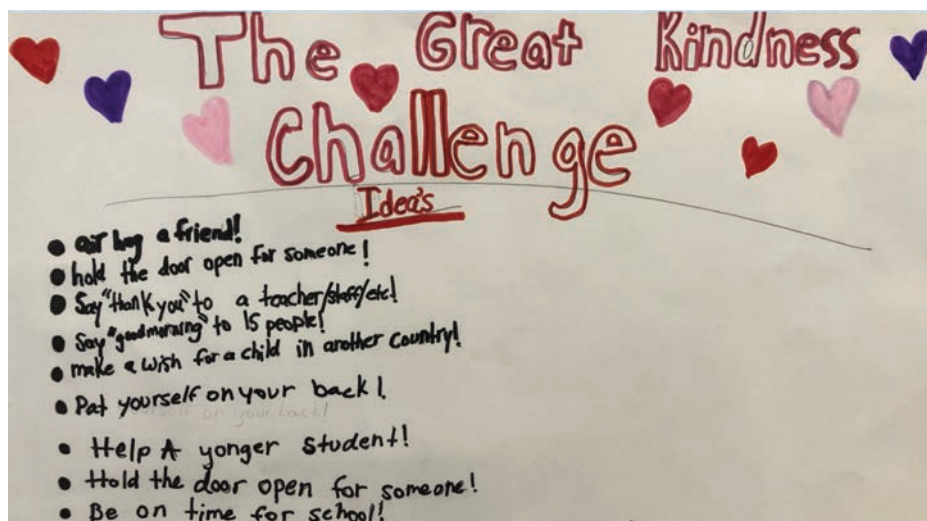 The Great Kindness
Challenge
Idea's
• air hug a friend!
• hold the door open for someone!
• Say "thank you" to a teacher/staff/etc!
• Say "good morning" to 15 people!
• make a wish for a child in another country!
• Pat yourself on your back!
yourself on your back!
• Help A yonger student!
• Hold the door open for someone!
• Be on time for school!